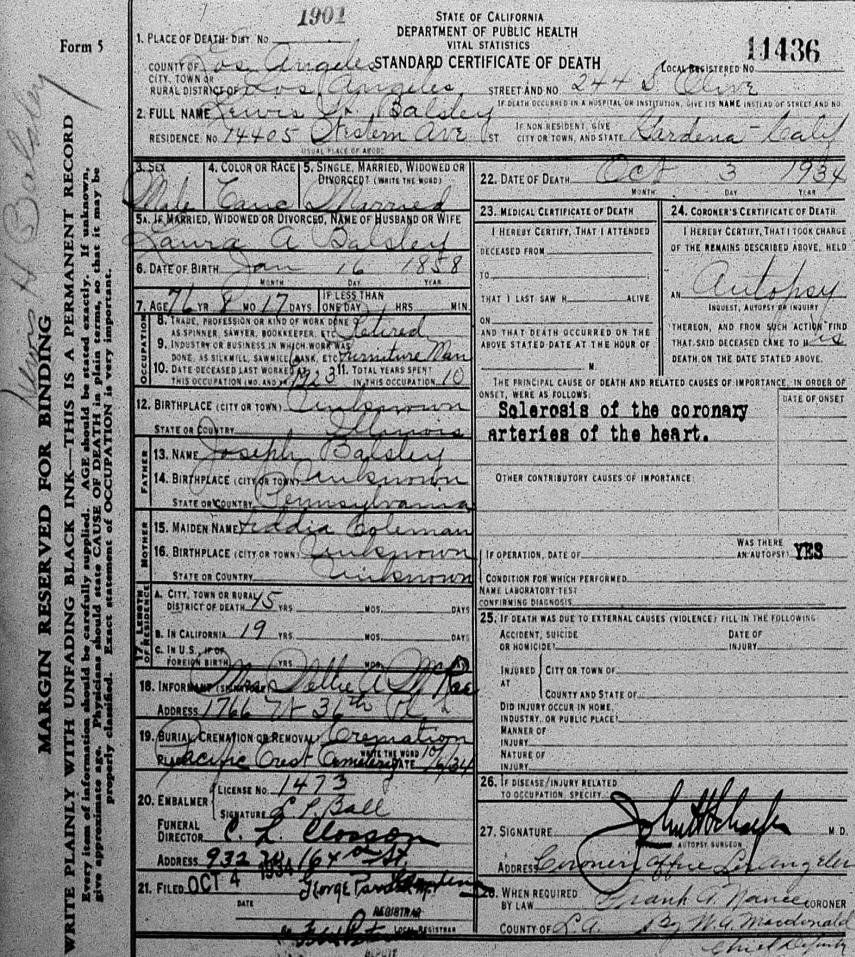 1901
STATE OF CALIFORNIA
DEPARTMENT OF PUBLIC HEALTH
VITAL STATISTICS
STANDARD CERTIFICATE OF DEATH
Form 5
11436
LOCAL REGISTERED NO.
1. PLACE OF DEATH- DIST. NO.
COUNTY OF Los Angeles
CITY, TOWN OR
RURAL DISTRICT OF Los Angeles STREET AND NO. 244 S Olive
IF DEATH OCCURRED IN A HOSPITAL OR INSTITUTION, GIVE ITS NAME INSTEAD OF STREET AND NO.
2. FULL NAME Lewis H. Balsley
RESIDENCE NO. 14405 Western Ave ST. IF NON RESIDENT, GIVE CITY OR TOWN, AND STATE. Gardena - Calif
USUAL PLACE OF ABODE
3. SEX Male
4. COLOR OR RACE Cauc
5. SINGLE, MARRIED, WIDOWED OR DIVORCED? (WRITE THE WORD) Married
5A. IF MARRIED, WIDOWED OR DIVORCED, NAME OF HUSBAND OR WIFE
Laura A Balsley
6. DATE OF BIRTH Jan 16 1858
MONTH DAY YEAR
7. AGE 76 YR 8 MO 17 DAYS IF LESS THAN ONE DAY HRS MIN
OCCUPATION
8. TRADE, PROFESSION OR KIND OF WORK DONE
AS SPINNER, SAWYER, BOOKKEEPER, ETC. Retired
9. INDUSTRY OR BUSINESS IN WHICH WORK WAS
DONE, AS SILKMILL, SAWMILL, BANK, ETC. Furniture Man
10. DATE DECEASED LAST WORKED AT THIS OCCUPATION (MO. AND YR.) 1923 11. TOTAL YEARS SPENT IN THIS OCCUPATION 10
12. BIRTHPLACE (CITY OR TOWN) Unknown
STATE OR COUNTRY Illinois
FATHER
13. NAME Joseph Balsley
14. BIRTHPLACE (CITY OR TOWN) Unknown
STATE OR COUNTRY Pennsylvania
MOTHER
15. MAIDEN NAME Coleman
16. BIRTHPLACE (CITY OR TOWN) Unknown
STATE OR COUNTRY Unknown
17. LENGTH OF RESIDENCE
A. CITY, TOWN OR RURAL
DISTRICT OF DEATH 15 YRS. MOS. DAYS
B. IN CALIFORNIA 19 YRS. MOS. DAYS
C. IN U.S., IF OF
FOREIGN BIRTH YRS. MOS. DAYS
18. INFORMANT (SIGNATURE) Mrs Nellie A McRae
ADDRESS 1766 W 36th Pl
19. BURIAL, CREMATION OR REMOVAL? Cremation
WRITE THE WORD
PLACE Pacific Crest Cemetery DATE 10/6/34
20. EMBALMER LICENSE NO. 1473
SIGNATURE L P Ball
FUNERAL
DIRECTOR C. L. Closson
ADDRESS 932 W 164th St.
21. FILED OCT 4 1934 George Parrish
DATE REGISTRAR
LOCAL REGISTRAR
DEPUTY
22. DATE OF DEATH Oct 3 1934
MONTH DAY YEAR
23. MEDICAL CERTIFICATE OF DEATH
I HEREBY CERTIFY, THAT I ATTENDED
DECEASED FROM
TO
THAT I LAST SAW H ALIVE
ON
AND THAT DEATH OCCURRED ON THE
ABOVE STATED DATE AT THE HOUR OF
M.
24. CORONER'S CERTIFICATE OF DEATH
I HEREBY CERTIFY, THAT I TOOK CHARGE
OF THE REMAINS DESCRIBED ABOVE, HELD
AN Autopsy
INQUEST, AUTOPSY OR INQUIRY
THEREON, AND FROM SUCH ACTION FIND
THAT SAID DECEASED CAME TO HIS
DEATH ON THE DATE STATED ABOVE.
THE PRINCIPAL CAUSE OF DEATH AND RELATED CAUSES OF IMPORTANCE, IN ORDER OF
ONSET, WERE AS FOLLOWS:
DATE OF ONSET
Sclerosis of the coronary
arteries of the heart.
OTHER CONTRIBUTORY CAUSES OF IMPORTANCE:
IF OPERATION, DATE OF WAS THERE AN AUTOPSY? YES
CONDITION FOR WHICH PERFORMED
NAME LABORATORY TEST
CONFIRMING DIAGNOSIS
25. IF DEATH WAS DUE TO EXTERNAL CAUSES (VIOLENCE) FILL IN THE FOLLOWING
ACCIDENT, SUICIDE
OR HOMICIDE? DATE OF INJURY
INJURED AT CITY OR TOWN OF
COUNTY AND STATE OF
DID INJURY OCCUR IN HOME,
INDUSTRY, OR PUBLIC PLACE?
MANNER OF
INJURY
NATURE OF
INJURY
26. IF DISEASE/INJURY RELATED
TO OCCUPATION, SPECIFY
27. SIGNATURE M D.
AUTOPSY SURGEON
ADDRESS Coroners Office Los Angeles
28. WHEN REQUIRED
BY LAW Frank A. Nance CORONER
COUNTY OF L.A. By W A Macdonald
Chief Deputy
Lewis H Balsley
MARGIN RESERVED FOR BINDING
WRITE PLAINLY WITH UNFADING BLACK INK—THIS IS A PERMANENT RECORD
Every item of information should be carefully supplied. AGE should be stated exactly. If unknown,
give approximate age. Physicians should state CAUSE OF DEATH in plain terms, so that it may be
properly classified. Exact statement of OCCUPATION is very important.